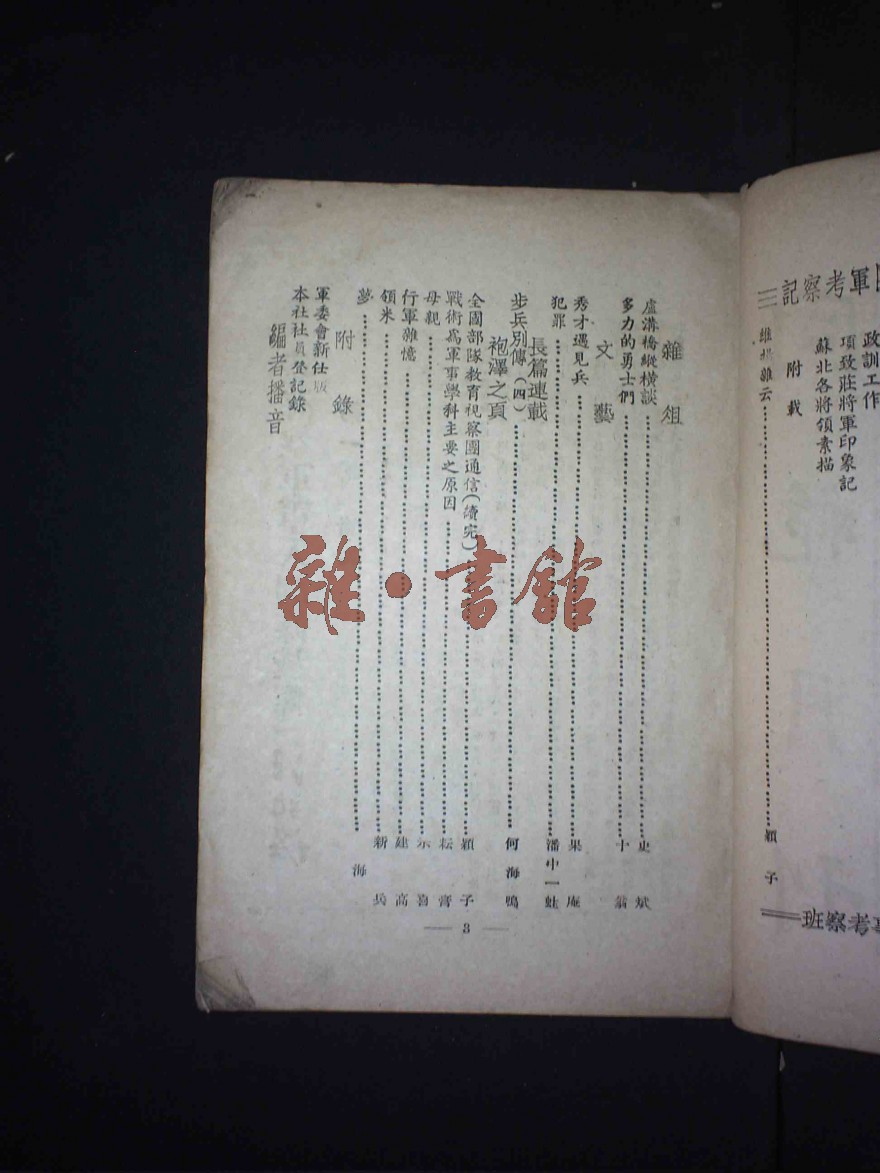 軍考察記
政訓工作
項致莊將軍印象記
蘇北各將領素描
附載
維揚雜云 穎子
考察班
雜俎
盧溝橋縱橫談 史斌
多力的勇士們 十翁
文藝
秀才遇見兵 果庵
犯罪 潘中一蛙
長篇連載
步兵別傳(四) 何海鳴
袍澤之頁
全國部隊教育視察團通信(續完) 穎子
戰術爲軍事學科主要之原因 耘膏
母親 喜
行軍雜憶 建高
領米 新兵
夢 海
附錄
軍委會新任版
本社社員登記錄
編者播音
3
雜·書館